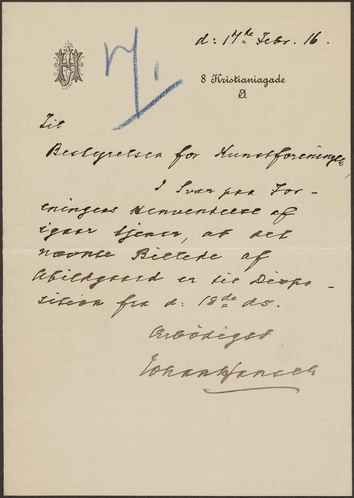 d: 17de Febr. 16.
8 Kristianiagade
Ø
Til
Bestyrelsen for Kunstforeningen,
I Svar paa For-
eningens Henvendelse af
igaar tjener, at det
nævnte Billede af
Abildgaard er til Dispo-
sition fra d: 18de ds.
Ærbødigst
Johan Hansen